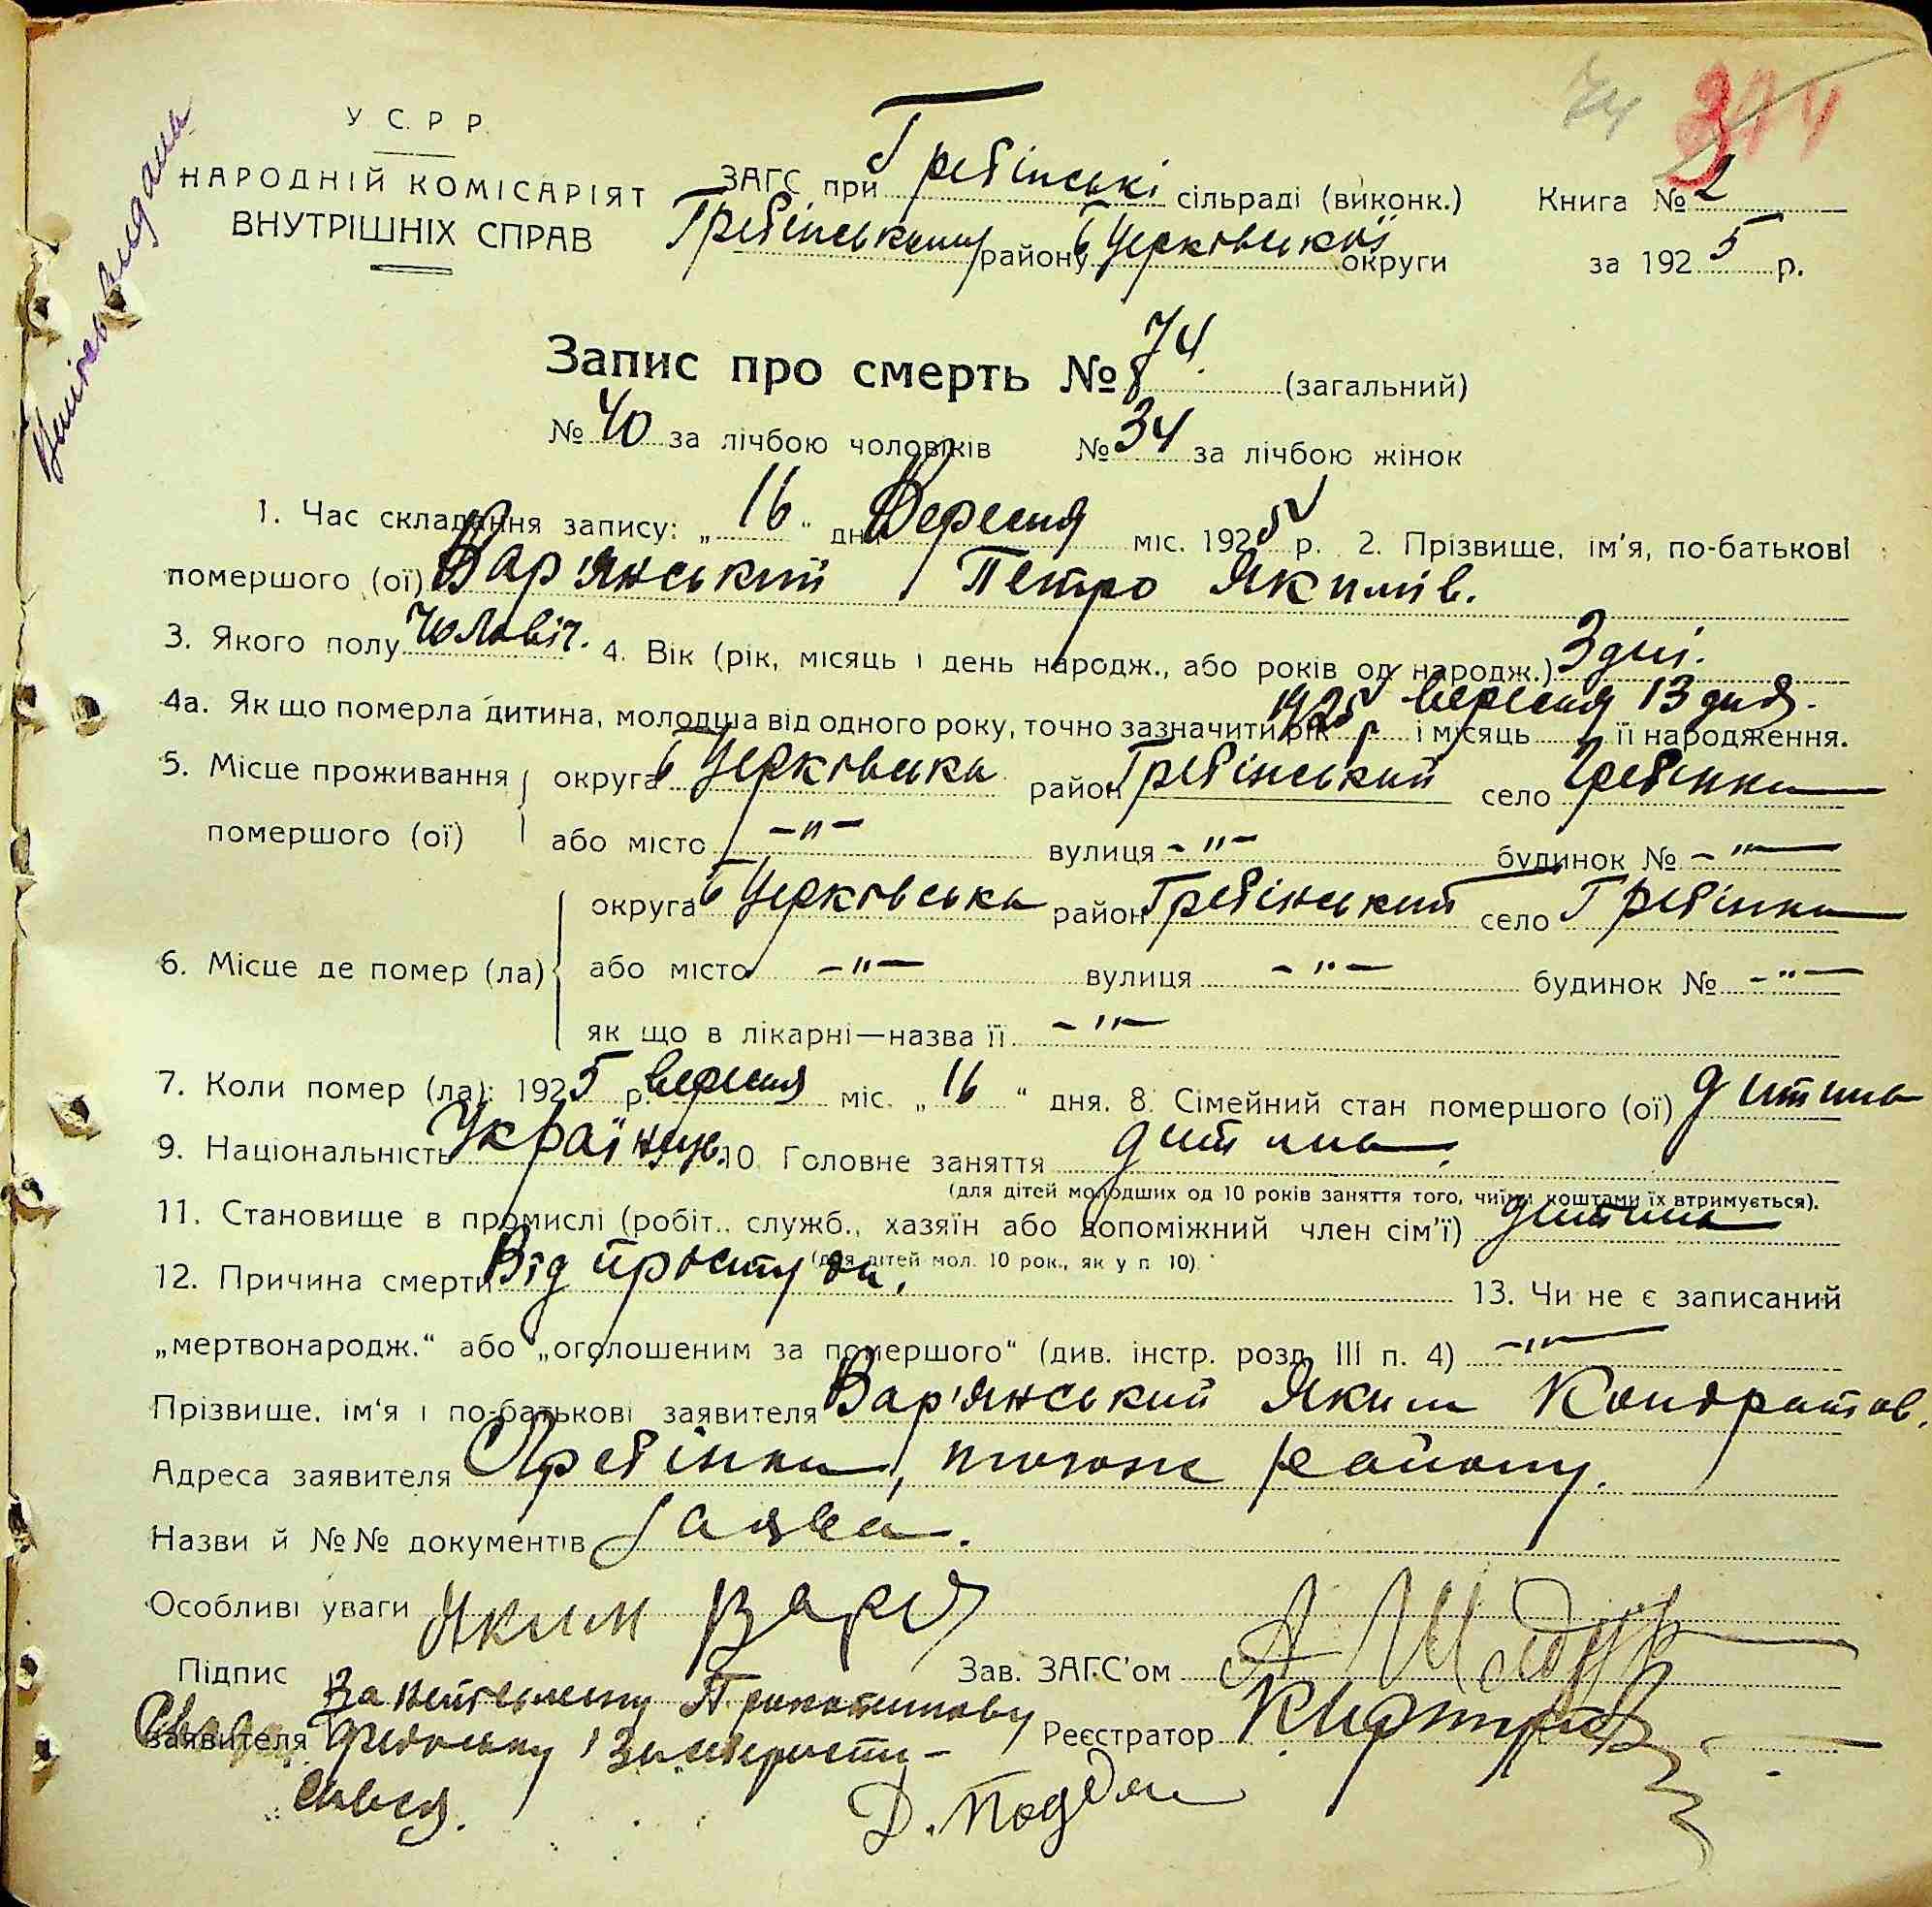 74 314
У. С. Р. Р.
НАРОДНІЙ КОМІСАРІЯТ
ВНУТРІШНІХ СПРАВ
ЗАГС при Гребінські сільраді (виконк.) Книга № 2
Гребінському району БЦерківської округи за 1925 р.
Запис про смерть № 74. (загальний)
№ 40 за лічбою чоловіків № 34 за лічбою жінок
1. Час складання запису: „16“ дня Вересня міс. 1925 р. 2. Прізвище, ім'я, по-батькові
помершого (ої) Вар'янський Петро Якимів.
3. Якого полу чоловіч. 4. Вік (рік, місяць і день народж., або років од народж.) 3 дні.
4а. Як що померла дитина, молодша від одного року, точно зазначити рік 1925 р і місяць вересня 13 дня. її народження.
5. Місце проживання помершого (ої) округа БЦерківська район Гребінський село Гребінки
або місто -"- вулиця -"- будинок № -"-
6. Місце де помер (ла) округа БЦерківська район Гребінський село Гребінки
або місто -"- вулиця -"- будинок № -"-
як що в лікарні—назва її -"-
7. Коли помер (ла): 1925 р. вересня міс. „16“ дня. 8. Сімейний стан помершого (ої) дитина
9. Національність Українець. 10. Головне заняття дитина.
(для дітей молодших од 10 років заняття того, чиїми коштами їх втримується).
11. Становище в промислі (робіт., служб., хазяїн або допоміжний член сім'ї) дитина
(для дітей мол. 10 рок., як у п. 10).
12. Причина смерти Від простуди. 13. Чи не є записаний
„мертвонародж.“ або „оголошеним за помершого“ (див. інстр. розд. III п. 4) -"-
Прізвище, ім'я і по-батькові заявителя Вар'янський Яким Кондратов.
Адреса заявителя Гребінки, тогож району.
Назви й №№ документів Заява.
Особливі уваги Яким Варя
Підпис заявителя Зав. ЗАГС'ом А
за
Федоську і
Реєстратор
Д.